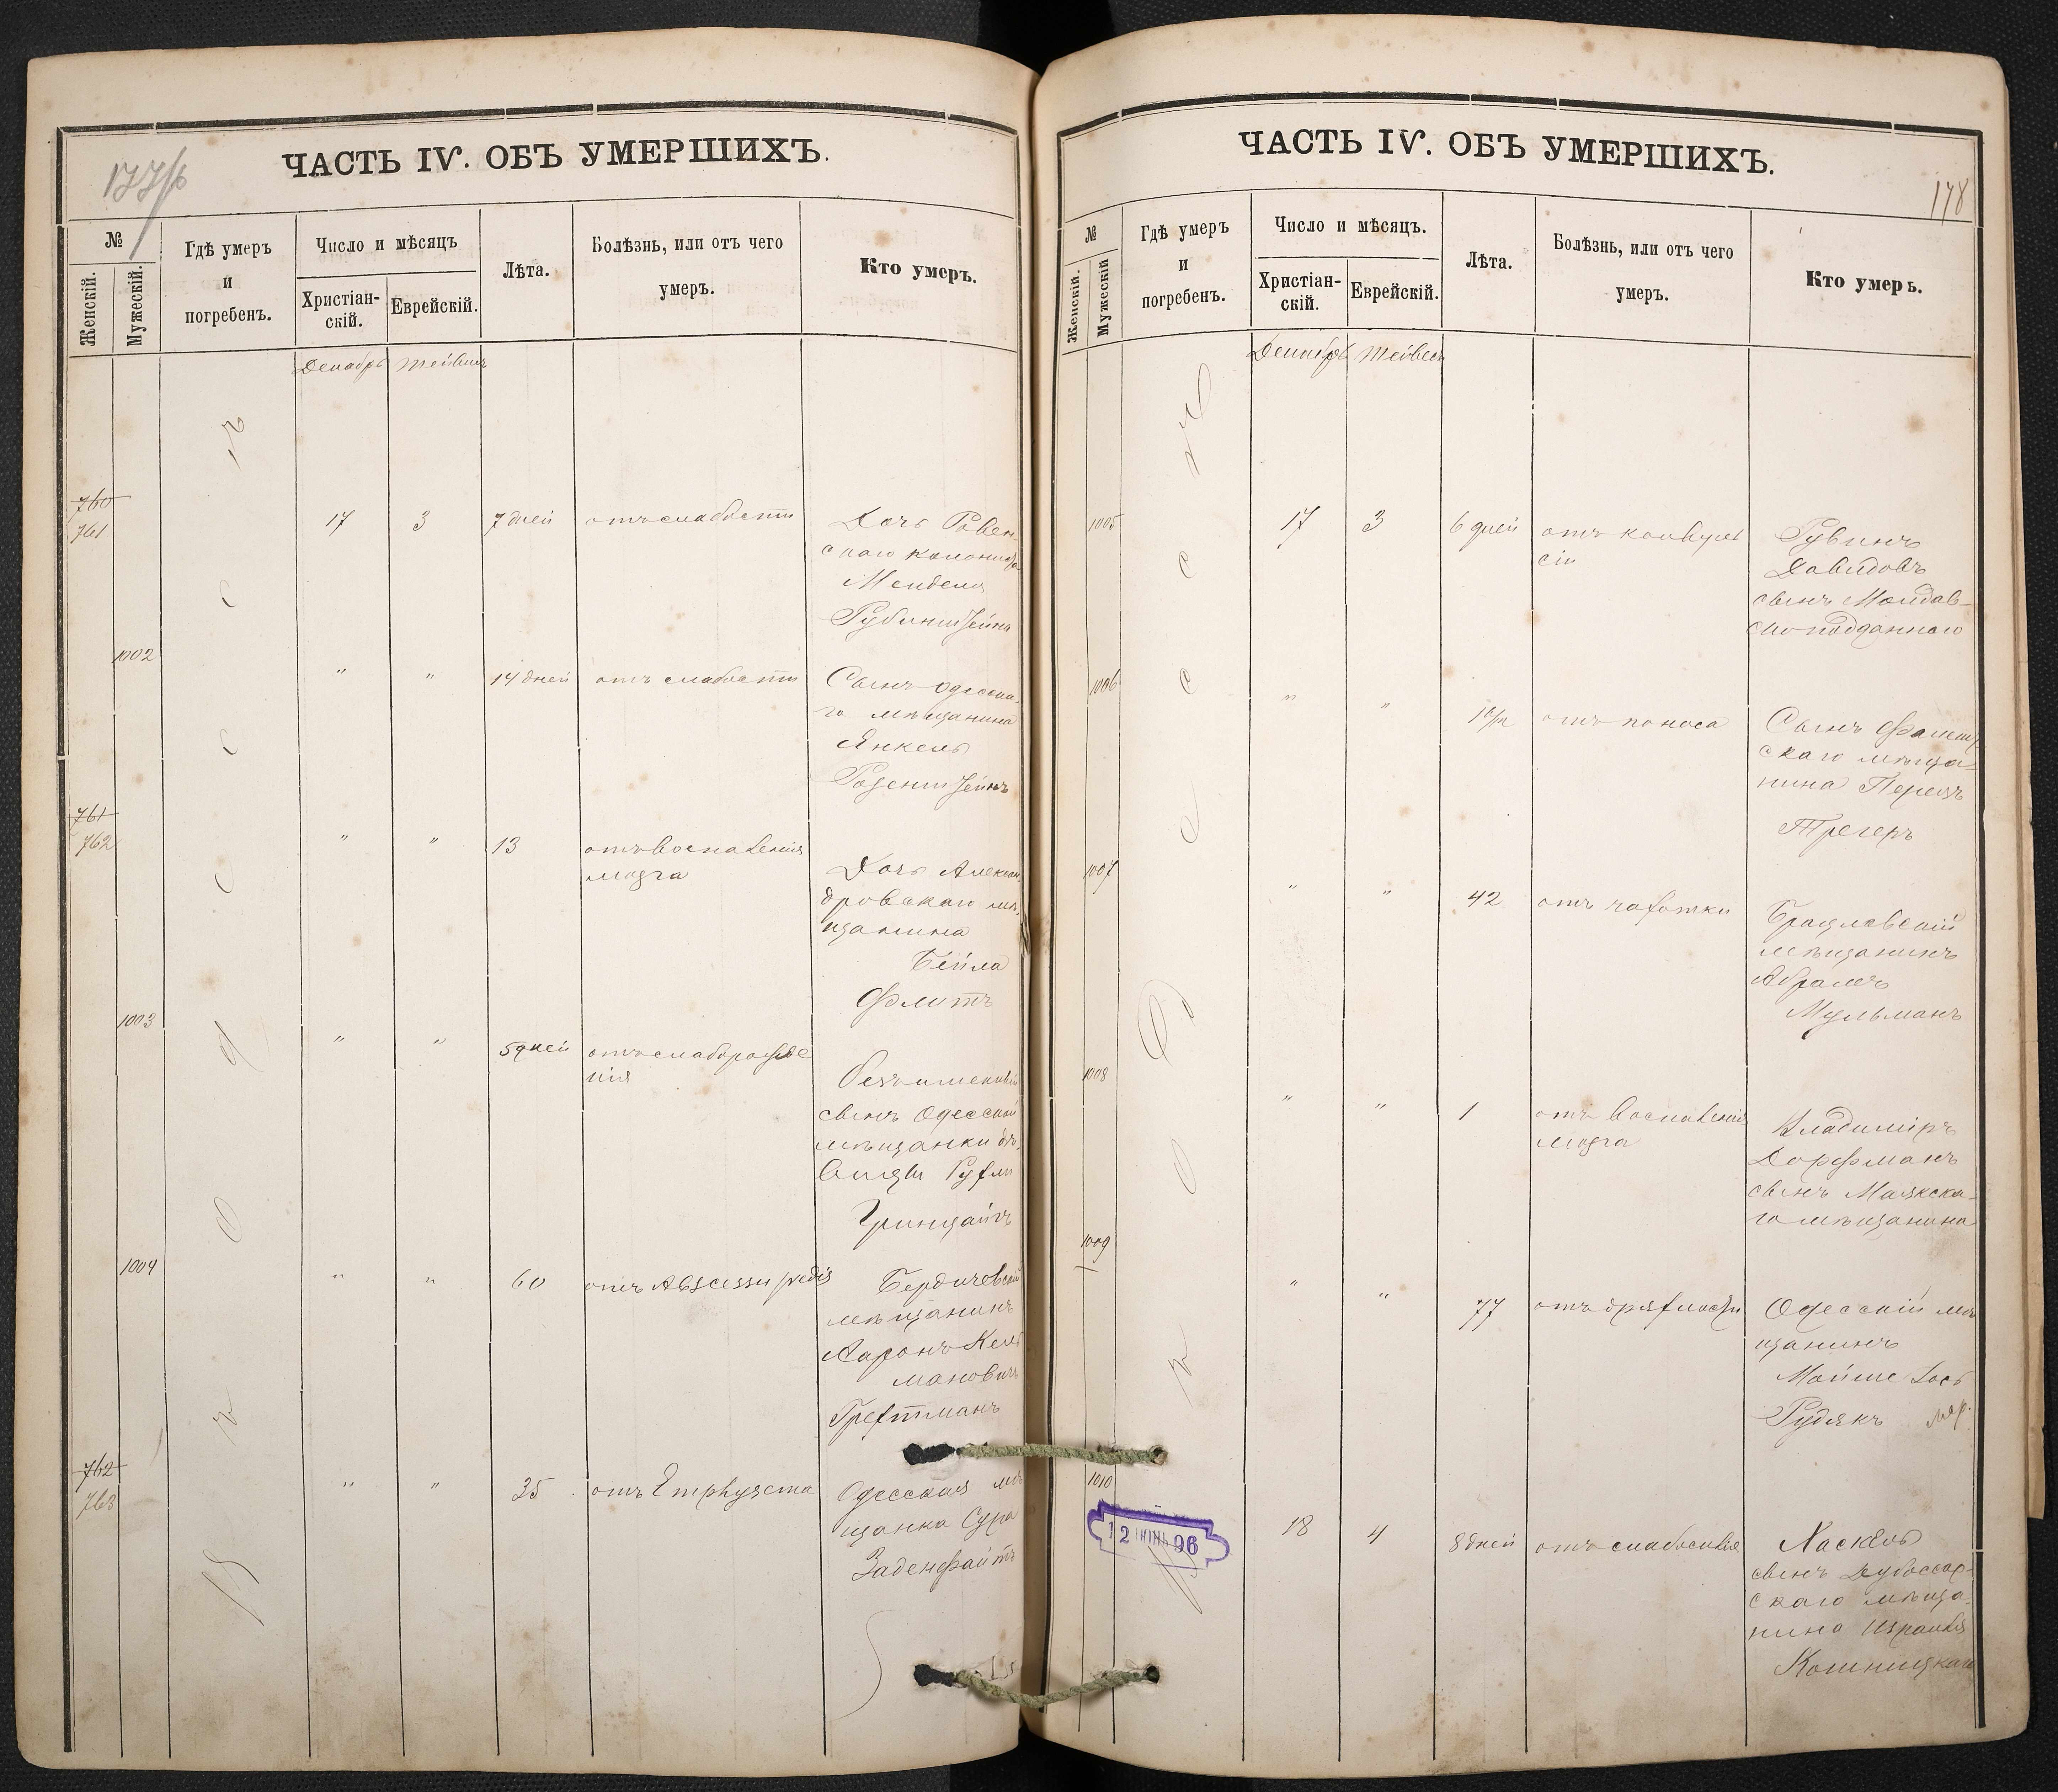 177/б
ЧАСТЬ IV. ОБЪ УМЕРШИХЪ.
№
Женскій.
Мужескій.
Гдѣ умеръ
и
погребенъ.
Число и мѣсяцъ
Христіан-
скій.
Еврейскій.
Лѣта.
Болѣзнь, или отъ чего
умеръ.
Кто умеръ.
Декабрь
въ г Одессѣ
760
761
17
3
7 дней
отъ слабости
Дочь Ровен-
скаго колониста
Менделя
Рубинштейна
1002
"
"
14 дней
отъ слабости
Сынъ одесска-
го мѣщанина
Янкель
Розенштейнъ
761
762
"
"
13
отъ воспаленія
мозга
Дочь Алексан-
дровскаго мѣ-
щанина
Бейла
Флитъ
1003
"
"
5 дней
отъ слаборожде
нія
безъименный
сынъ Одесской
мѣщанки дѣ-
вицы Рухли
1004
"
"
60
отъ Abscessu pedis
Бердичевскій
мѣщанинъ
Ааронъ Кель
мановичъ
762
763
"
"
35
отъ Emphysema
Одесская мѣ
щанка Сура
Заденфайтъ
ЧАСТЬ IV. ОБЪ УМЕРШИХЪ.
178
№
Женскій.
Мужескій
Гдѣ умеръ
и
погребенъ.
Число и мѣсяцъ.
Христіан-
скій.
Еврейскій.
Лѣта.
Болѣзнь, или отъ чего
умеръ.
Кто умеръ.
Декабрь
въ г Одессѣ
1005
17
3
6 дней
отъ конвуль
сіи
Рувинъ
Давидовъ
сынъ Молдав-
ско подданнаго
1006
"
"
отъ поноса
Сынъ
скаго мѣща-
нина Перецъ
Трегеръ
1007
"
"
42
отъ чахотки
Брацлавскій
мѣщанинъ
Абрамъ
Мульманъ
1008
"
"
1
отъ воспаленія
мозга
Владиміръ
Дорфманъ
сынъ Маякска-
го мѣщанина
1009
"
"
77
отъ дряхлости
Одесскій мѣ
щанинъ
Мойше Іось
Рудякъ
1010
12 ІЮНЬ 96
18
4
8 дней
Хаскель
сынъ Дубоссар-
скаго мѣща-
нина Израиля